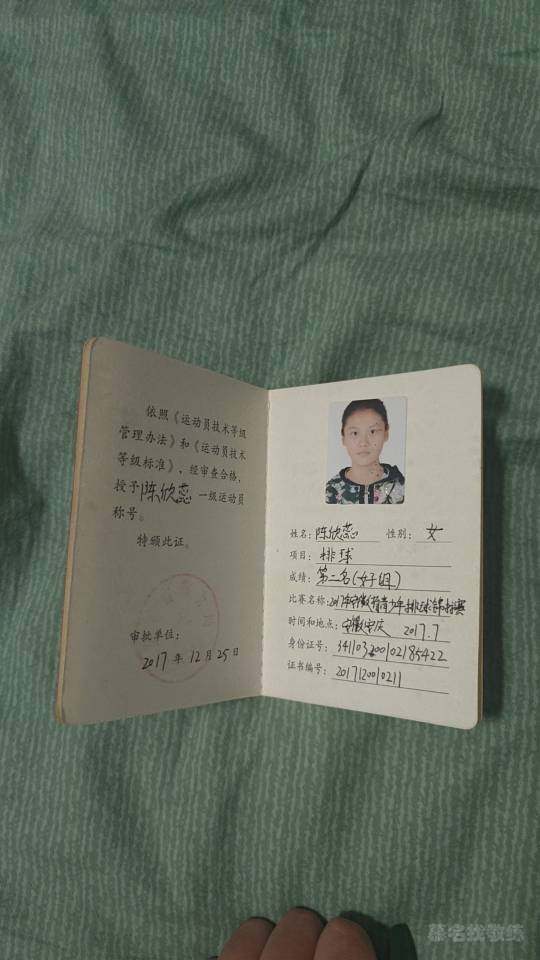 依照《运动员技术等级
管理办法》和《运动员技术
等级标准》，经审查合格，
授予陈欣蕊 一级运动员
称号。
特颁此证。
审批单位：
2017年12月25日
姓名：陈欣蕊 性别：女
项目：排球
成绩：第二名(女子组)
比赛名称：2017年安徽省青少年排球锦标赛
时间和地点：安徽安庆 2017.7
身份证号：341103200102185422
证书编号：2017120010211
慕名找教练